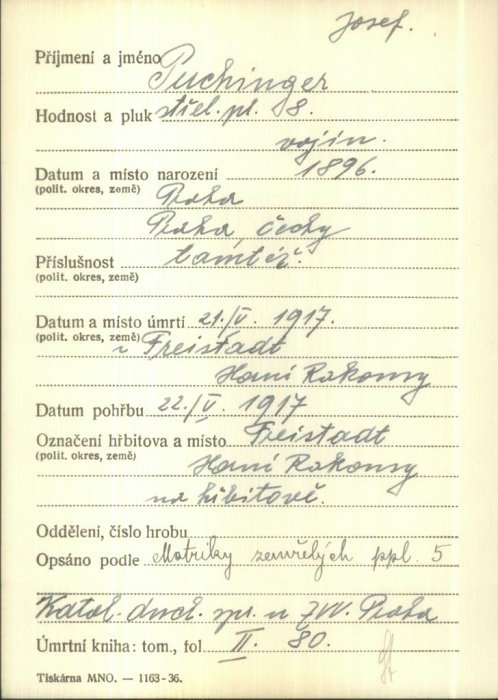 Josef.
Příjmení a jméno Puchinger
Hodnost a pluk střel. pl. 8.
vojín.
Datum a místo narození 1896.
(polit. okres, země) Praha
Praha, Čechy
Příslušnost tamtéž.
(polit. okres, země)
Datum a místo úmrtí 21./V. 1917.
(polit. okres, země) v Freistadt
Horní Rakousy
Datum pohřbu 22./V. 1917
Označení hřbitova a místo Freistadt
(polit. okres, země) Horní Rakousy
na hřbitově.
Oddělení, číslo hrobu
Opsáno podle Matriky zemřelých ppl. 5
Katol. duch. spr. u ZVV. Praha
Úmrtní kniha: tom., fol II. 80.
Tiskárna MNO. — 1163-36.